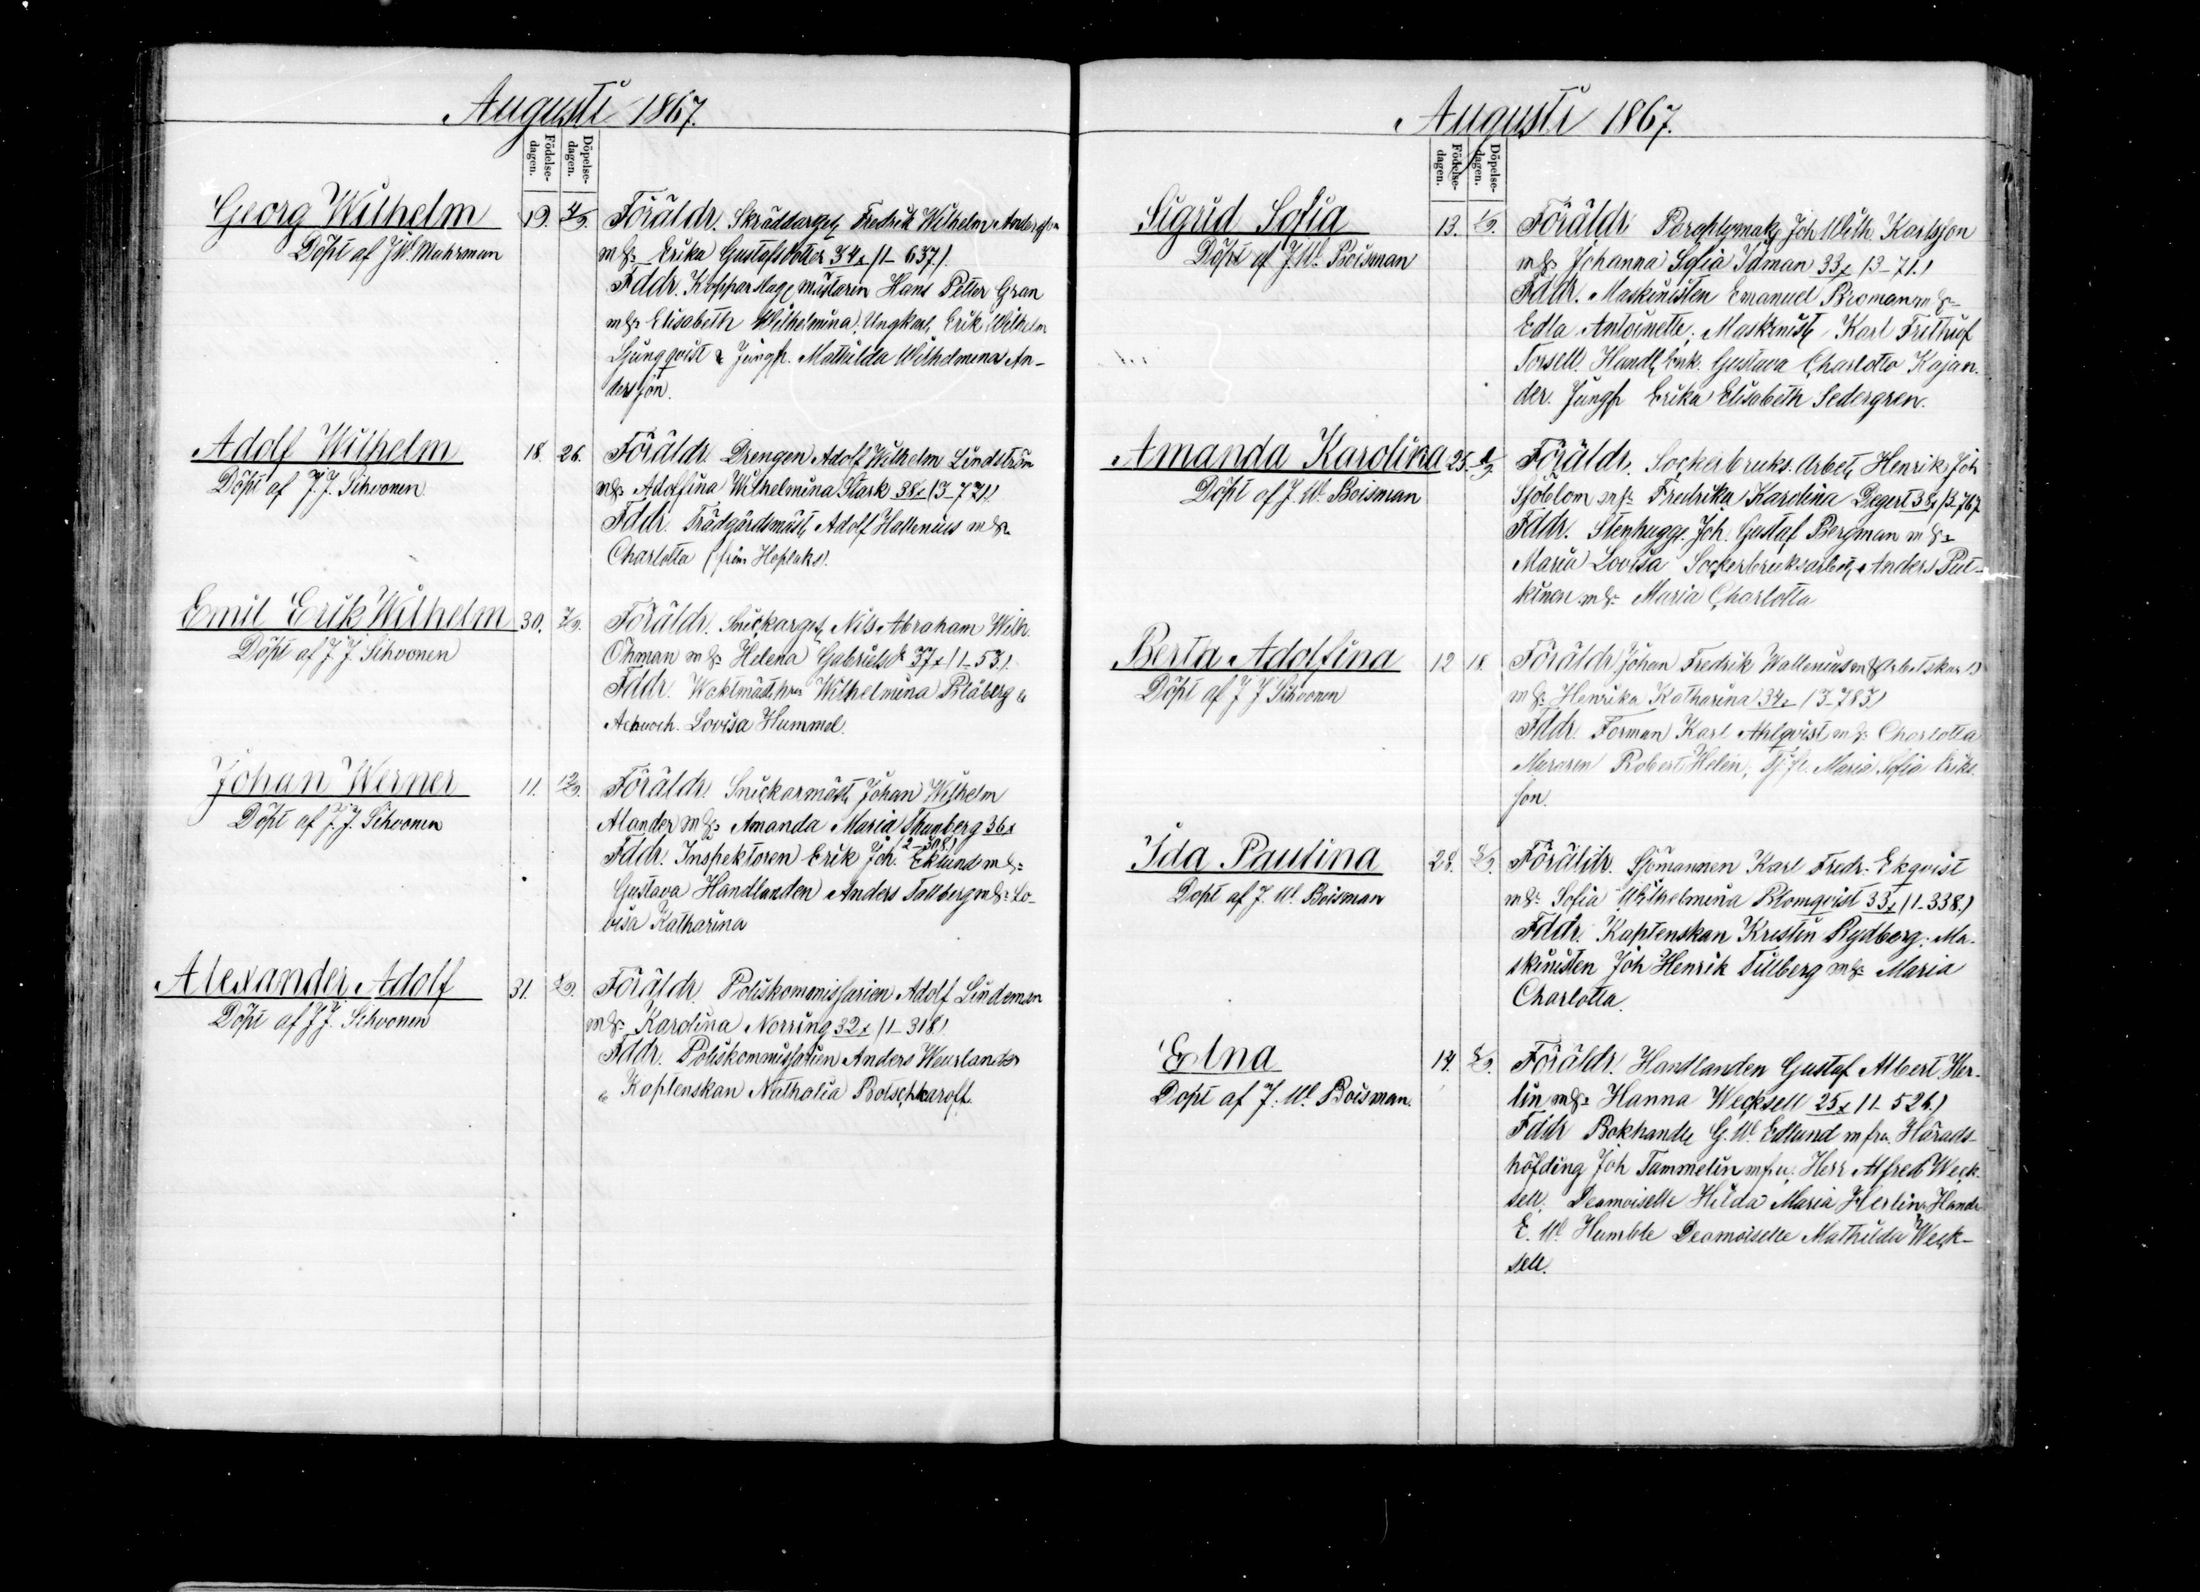 Augusti 1867.
Födelse-
dagen.
Döpelse-
dagen.
Georg Wilhelm
Döpt af J.W. Muhrman
19. 4/9.
Föräldr. Skräddarges. Fredrik Wilhelm Andersson
m. h. Erika Gustafsdotter 34 (1-637).
Fddr. Kopparslagemästaren Hans Petter Gran
m. h. Elisabeth Wilhelmina, Ungkarl. Erik Wilhelm
Ljungqvist & Jungfr. Mathilda Wilhelmina An-
dersson.
Adolf Wilhelm
Döpt af J. J. Sihvonen
18. 26.
Föräldr. Drengen Adolf Wilhelm Lindström
m. h. Adolfina Wilhelmina Stark 38 (3-721)
Fddr. Trädgårdsmäst. Adolf Hallenius m. h.
Charlotta (från Hoplaks).
Emil Erik Wilhelm
Döpt af J. J. Sihvonen
30.
Föräldr. Snickarges. Nils Abraham Wilh.
Öhman m. h. Helena Gabrielsd. 37 (1-53).
Fddr. Waktmäst. Wilhelmina Blåberg &
Lovisa Hummel.
Johan Werner
Döpt af J. J. Sihvonen
11. 12/9.
Föräldr. Snickarmäst. Johan Wilhelm
Alander m. h. Amanda Maria Thunberg 36
Fddr. Inspektoren Erik Joh. Eklund m. h.
Gustava Handlanden Anders Tallberg m. h. Lo-
visa Katharina
Alexander Adolf
Döpt af J. J. Sihvonen
31.
Föräldr. Poliskommissarien Adolf Lindeman
m. h. Karolina Norring 32 (1-318).
Fddr. Poliskommissarien Anders Weurlander
& Kaptenskan Nathalia Botschkaroff.
Augusti 1867.
Födelse-
dagen.
Döpelse-
dagen.
Sigrid Sofia
Döpt af J. W. Boisman
13.
Föräldr. Joh. Wilh. Karlsson
m. h. Johanna Sofia Idman 33 (3-71.)
Fddr. Maskinisten Emanuel Broman m. h.
Edla Antoinette; Maskinist. Karl Frithiof
Torsell. Handl. Enk. Gustava Charlotta Kajan-
der. Jungfr. Erika Elisabeth Sedergren.
Amanda Karolina
Döpt af J. W. Boisman
25.
Föräldr. Sockerbruks. Arbet. Henrik Joh
Sjöblom m. h. Fredrika Karolina Degert 38 (3-767
Fddr. Stenhugg. Joh. Gustaf Bergman m. h.
Maria Lovisa Sockerbruksarbet. Anders Put-
kinen m. h. Maria Charlotta
Berta Adolfina
Döpt af J J Sihvonen
12 18.
Föräldr. Johan Fredrik Wallenius
m. h. Henrika Katharina 34 (3-783)
Fddr. Forman Karl Ahlqvist m. h. Charlotta
Muraren Robert Helen, Maria Sofia Eriks-
son.
Ida Paulina
Döpt af J. W. Boisman
28.
Föräldr. Sjömannen Karl Fredr. Ekqvist
m. h. Sofia Wilhelmina Blomqvist 33 (1-338.)
Fddr. Kaptenskan Kristin Rydberg. Ma-
skinisten Joh Henrik Tillberg m. h. Maria
Charlotta.
Edna
Döpt af J. W. Boisman.
14.
Föräldr. Handlanden Gustaf Albert Her-
lin m. h. Hanna Wecksell 25 (1-526.)
Fddr Bokhandl. G. W. Edlund m. fru. Härads-
höfding Joh Tammelin m. fru. Herr Alfred Weck-
sell. Demoiselle Hilda Maria Herlin. Handl.
E. W. Humble Demoiselle Mathilda Weck-
sell.